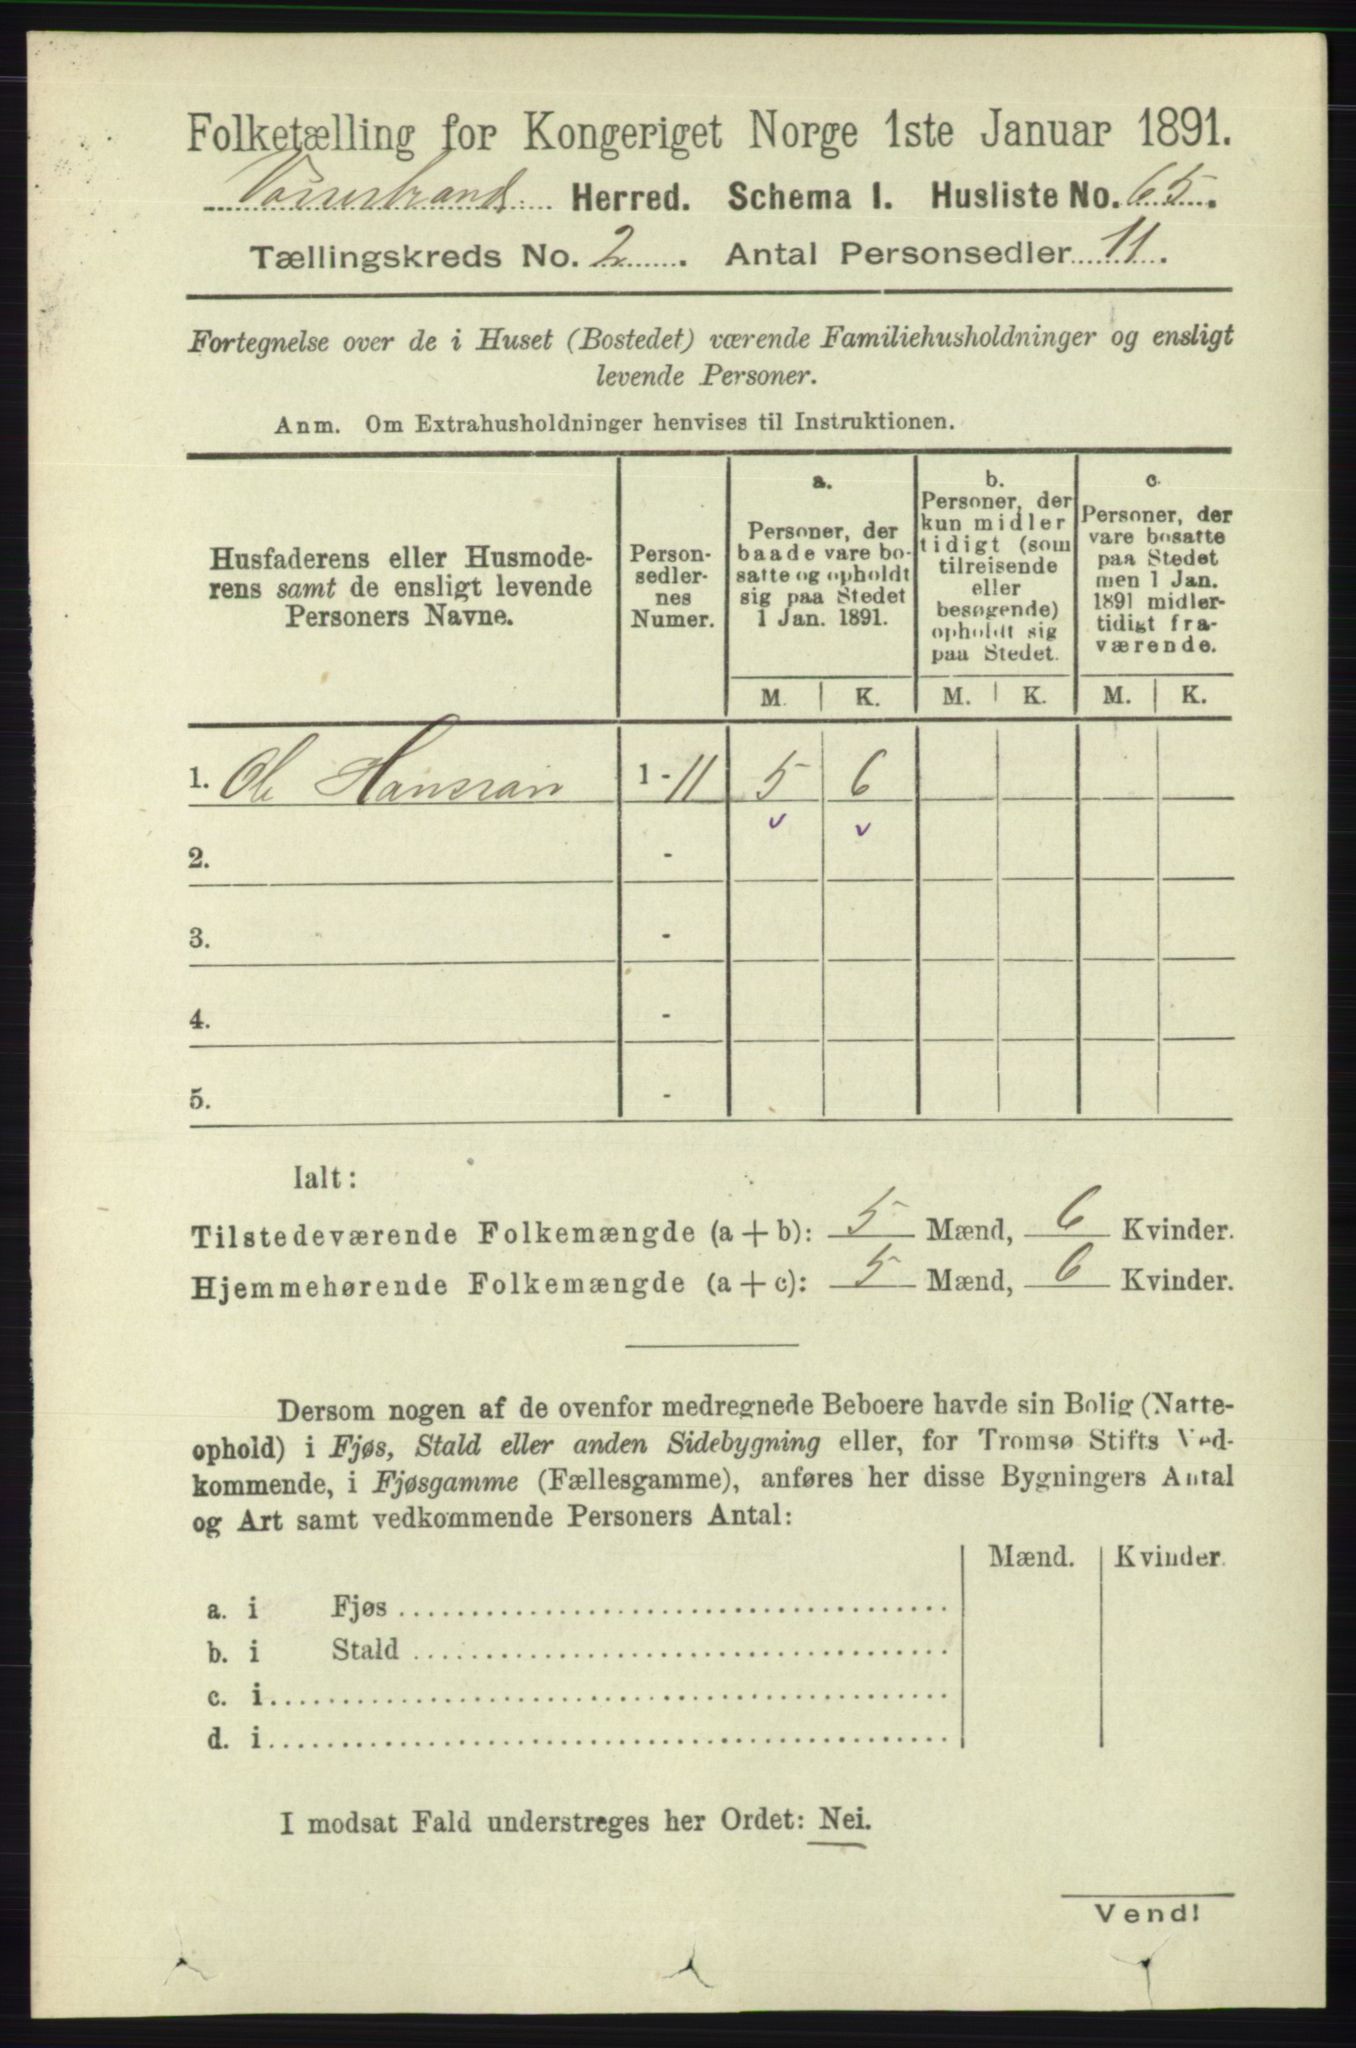 Folketælling for Kongeriget Norge 1ste Januar 1891.
Vossestrand Herred. Schema I. Husliste No. 65.
Tællingskreds No. 2. Antal Personsedler 11.
Fortegnelse over de i Huset (Bostedet) værende Familiehusholdninger og ensligt
levende Personer.
Anm. Om Extrahusholdninger henvises til Instruktionen.
Husfaderens eller Husmode-
rens samt de ensligt levende
Personers Navne.
Person-
sedler-
nes
Numer.
a.
Personer, der
baade vare bo-
satte og opholdt
sig paa Stedet
1 Jan. 1891.
b.
Personer, der
kun midler
tidigt (som
tilreisende
eller
besøgende)
opholdt sig
paa Stedet.
c.
Personer, der
vare bosatte
paa Stedet
men 1 Jan.
1891 midler-
tidigt fra-
værende.
M. K. M. K. M. K.
1. Ole Hansson 1 - 11 5 6
v v
2. -
3. -
4. -
5. -
Ialt:
Tilstedeværende Folkemængde (a + b): 5 Mænd, 6 Kvinder.
Hjemmehørende Folkemængde (a + c): 5 Mænd, 6 Kvinder.
Dersom nogen af de ovenfor medregnede Beboere havde sin Bolig (Natte-
ophold) i Fjøs, Stald eller anden Sidebygning eller, for Tromsø Stifts Ved-
kommende, i Fjøsgamme (Fællesgamme), anføres her disse Bygningers Antal
og Art samt vedkommende Personers Antal:
Mænd. Kvinder.
a. i Fjøs
b. i Stald
c. i
d. i
I modsat Fald understreges her Ordet: Nei.
Vend!